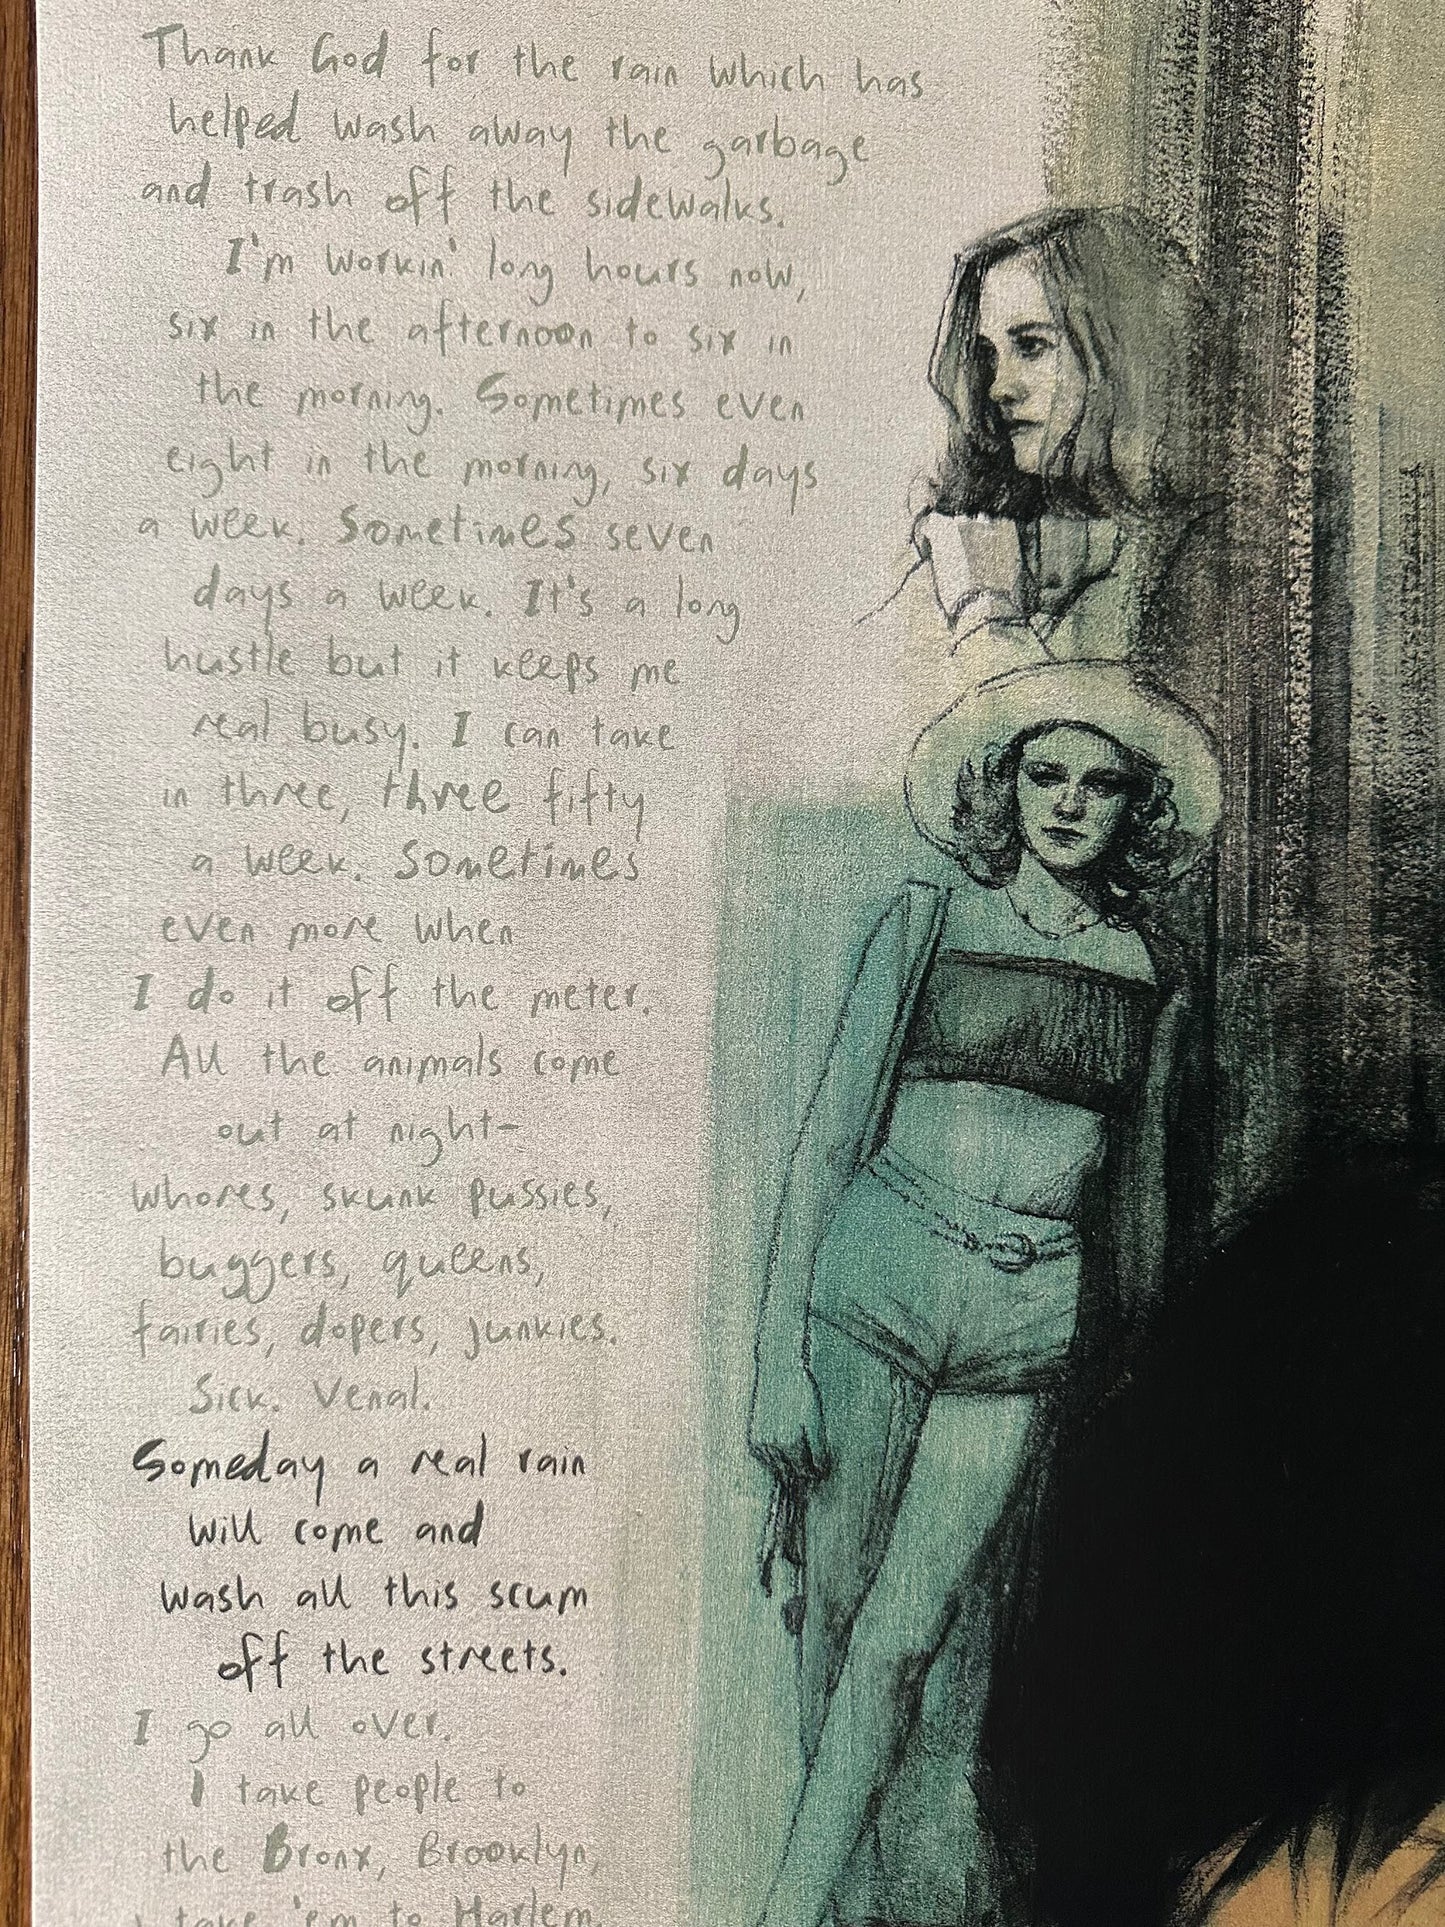 Thank God for the rain which has
helped wash away the garbage
and trash off the sidewalks.
I'm workin' long hours now,
six in the afternoon to six in
the morning. Sometimes even
eight in the morning, six days
a week. Sometimes seven
days a week. It's a long
hustle but it keeps me
real busy. I can take
in three, three fifty
a week. Sometimes
even more when
I do it off the meter.
All the animals come
out at night-
whores, skunk pussies,
buggers, queens,
fairies, dopers, junkies.
Sick. Venal.
Someday a real rain
will come and
wash all this scum
off the streets.
I go all over.
I take people to
the Bronx, Brooklyn,
I take 'em to Harlem.